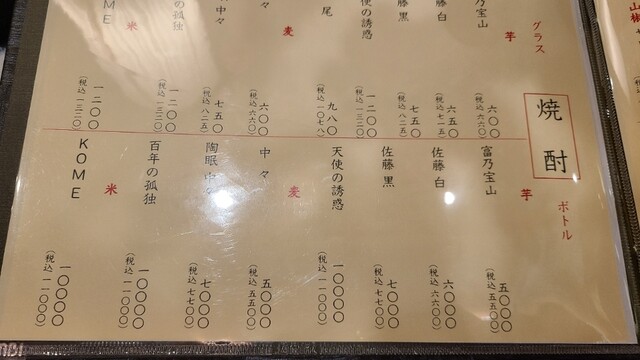 焼酎
グラス
芋
乃宝山
六〇〇
(税込 六六〇)
白
六五〇
(税込 七一五)
藤黒
七五〇
(税込 八二五)
使の誘惑
一二〇〇
(税込 一三二〇)
尾
九八〇
(税込 一〇七八)
麦
々
六〇〇
(税込 六六〇)
中々
七五〇
(税込 八二五)
の孤独
一二〇〇
(税込 一三二〇)
米
ME
一二〇〇
(税込 一三二〇)
ボトル
芋
富乃宝山
五〇〇〇
(税込 五五〇〇)
佐藤 白
六〇〇〇
(税込 六六〇〇)
佐藤 黒
七〇〇〇
(税込 七七〇〇)
天使の誘惑
一〇〇〇〇
(税込 一一〇〇〇)
麦
中々
五〇〇〇
(税込 五五〇〇)
陶眠 中
七〇〇〇
(税込 七七〇〇)
百年の孤独
一〇〇〇〇
(税込 一一〇〇〇)
米
KOME
一〇〇〇〇
(税込 一一〇〇〇)
山椒